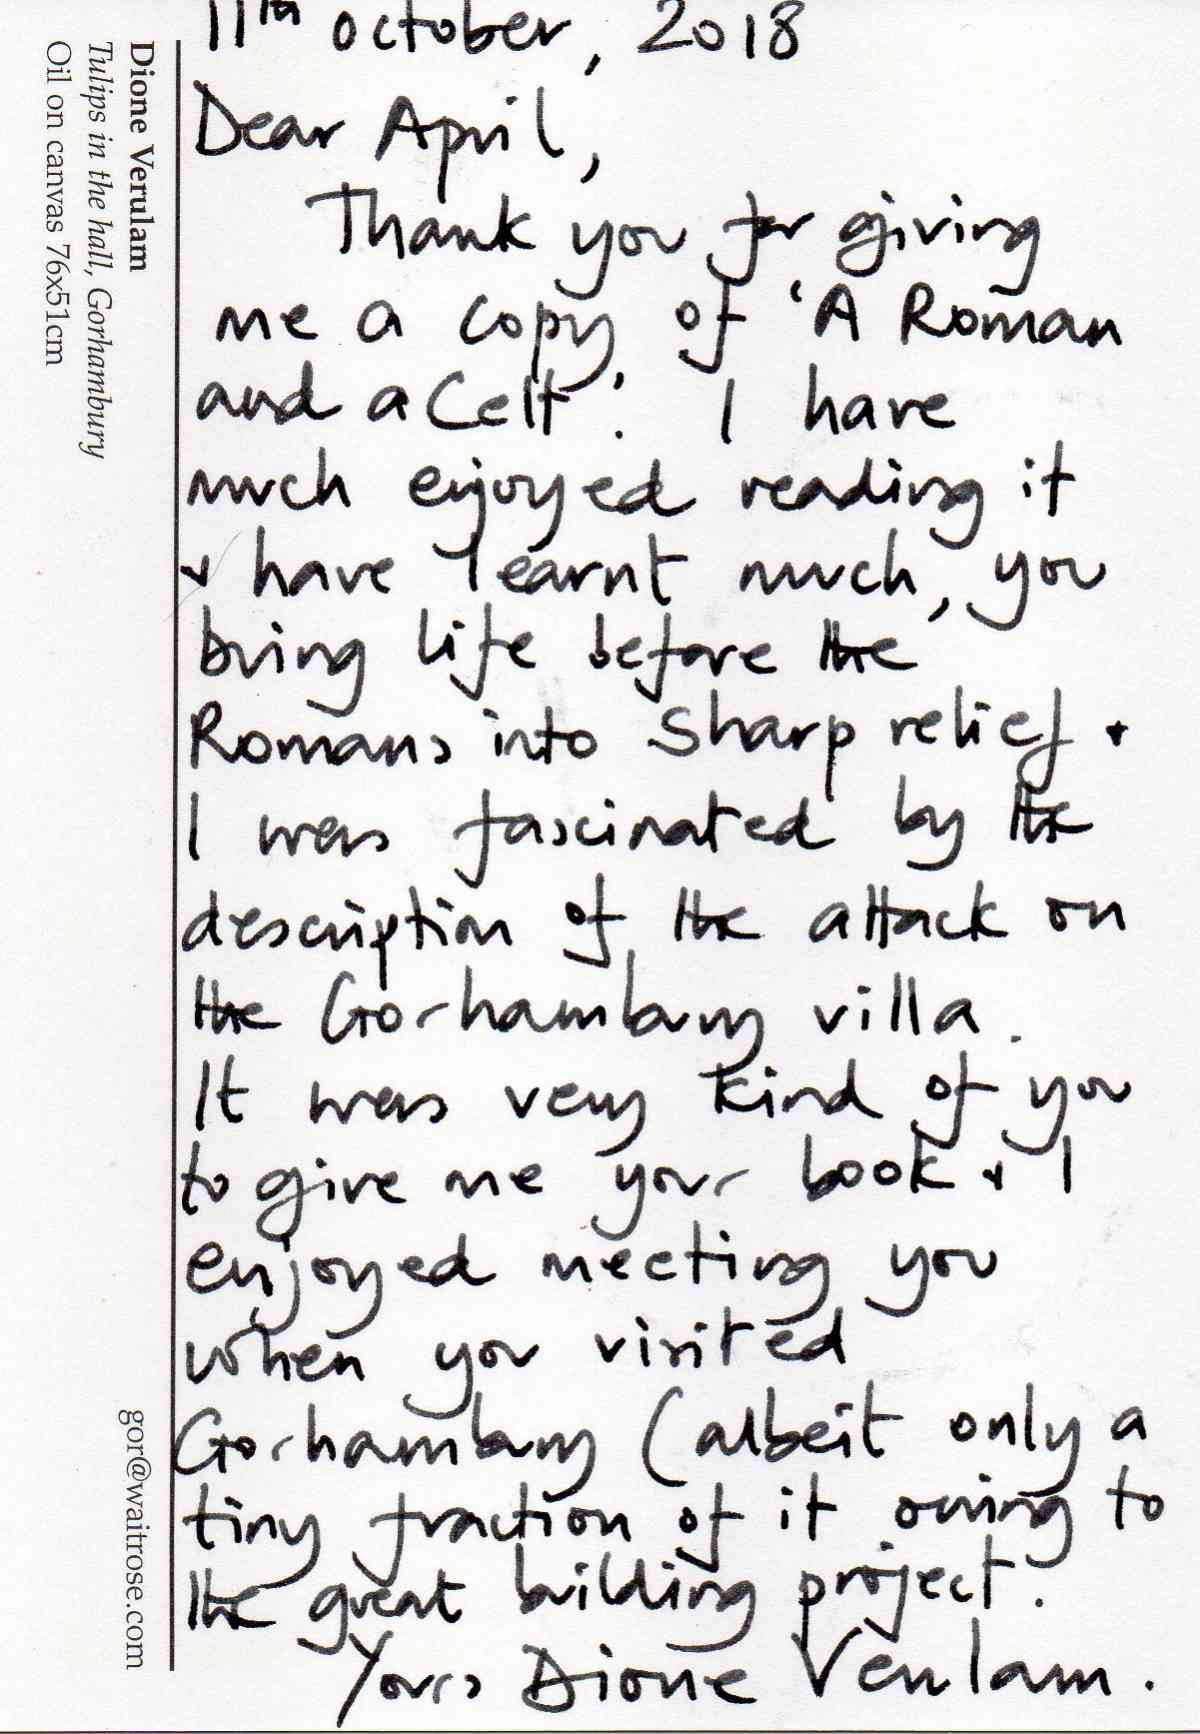 11th October, 2018
Dear April,
Thank you for giving
me a copy of 'A Roman
and a Celt'. I have
much enjoyed reading it
& have learnt much, you
bring life before the
Romans into sharp relief &
I was fascinated by the
description of the attack on
the Gorhambury villa.
It was very kind of you
to give me your book & I
enjoyed meeting you
when you visited
Gorhambury (albeit only a
tiny fraction of it owing to
the great building project.
Yours Dione Verulam.
Dione Verulam
Tulips in the hall, Gorhambury
Oil on canvas 76x51cm
gor@waitrose.com